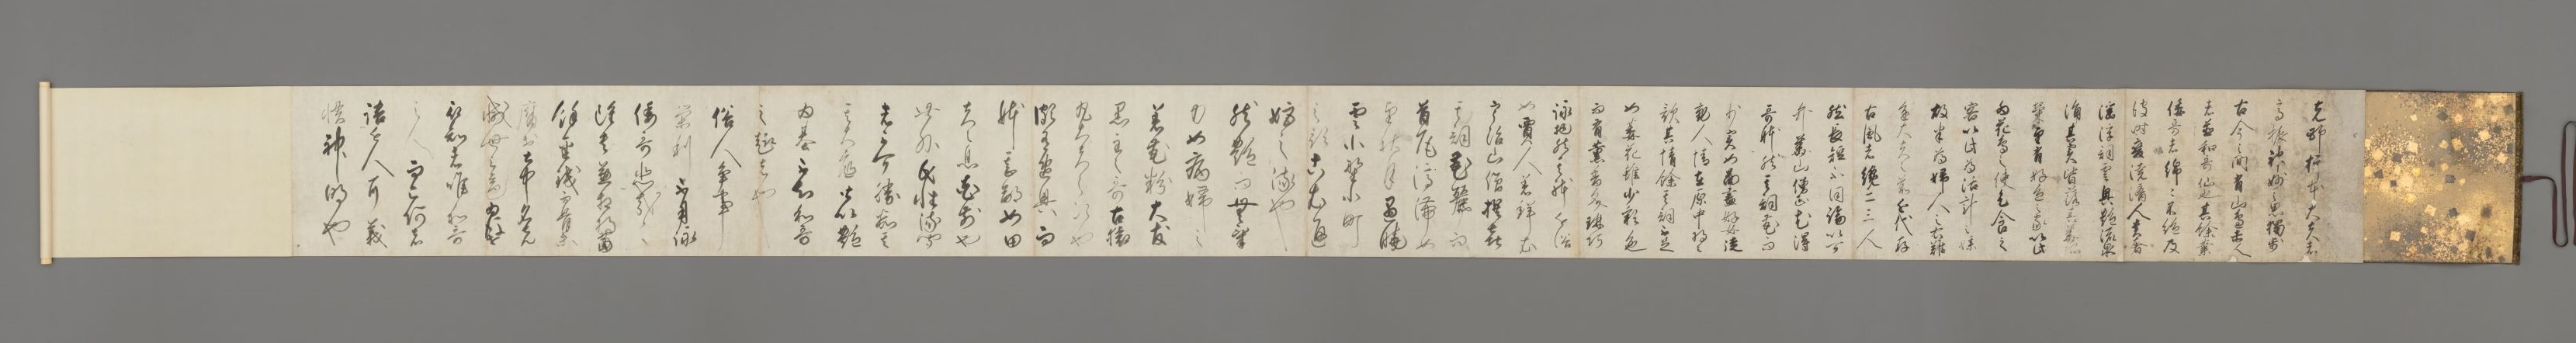 先師柿本大夫者
高振神妙之思獨步
古今之間有山邊赤人
者並和哥仙也其餘業
倭哥者綿々不絶及
彼時變澆漓人貴奢
淫浮詞雲興艶流泉
涌其實皆落其花孤
榮至有好色之家以此
為花鳥之使乞食之
客以此為活計之媒
故半為婦人之右難
進大夫之前近代存
古風者纔二三人
然長短不同論以可
弁花山僧正尤得
哥躰然其詞花而
少實如畫圖好女徒
動人情在原中將之
歌其情餘其詞不足
如萎花雖少彩色
而有薫香文琳巧
詠物然其躰近俗
如賈人着鮮衣
宇治山僧撰喜
其詞花麗而
首尾停滯如
望秋月遇曉
雲小野小町
之歌古衣通
姫之流也
然艶而無氣
力如病婦之
着花粉大友
黒主之哥古猿
丸大夫之次也
頗有逸興而
躰甚鄙如田
夫之息花前也
此外氏姓流聞
者不可勝數其
大底皆以艶
為基不知和哥
之趣者也
俗人爭事
榮利不用詠
倭哥悲哉々々
雖貴兼相將富
餘金錢而骨未
腐於土中名先
滅世上適為後世
被知者唯和哥
之人而已何者
語近人耳義
慣神明也